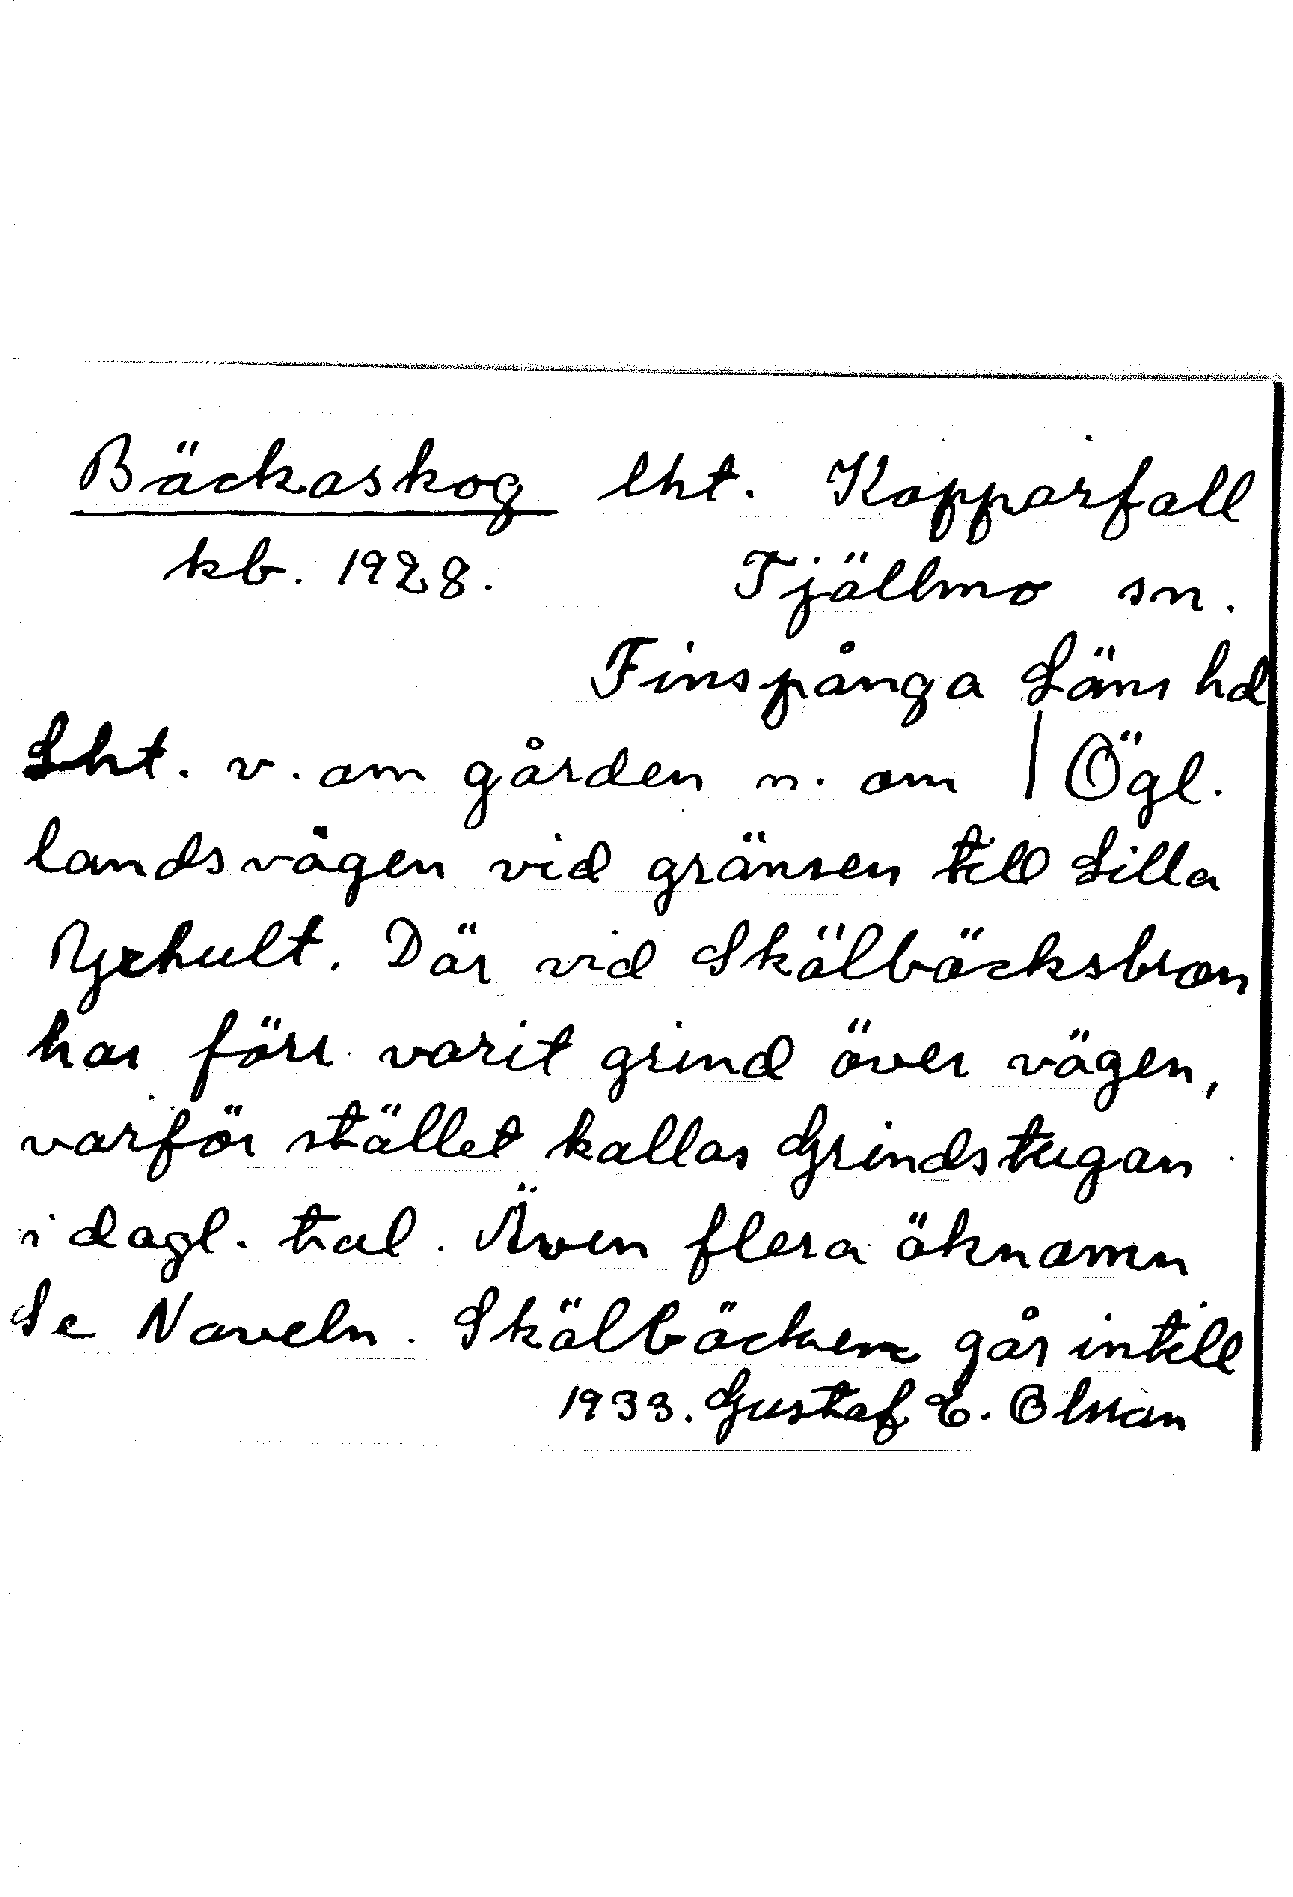 Bäckaskog lht. Kopparfall
kb. 1928. Tjällmo sn.
Finspånga Läns hd
Lht. v. om gården n. om | Ögl.
landsvägen vid gränsen till Lilla
Yxhult. Där vid Skälbäcksbron
har förr varit grind över vägen,
varför stället kallas Grindstugan
i dagl. tal. Även flera öknamn
Se Naveln. Skälbäcken går intill
1933. Gustaf E. Olsson